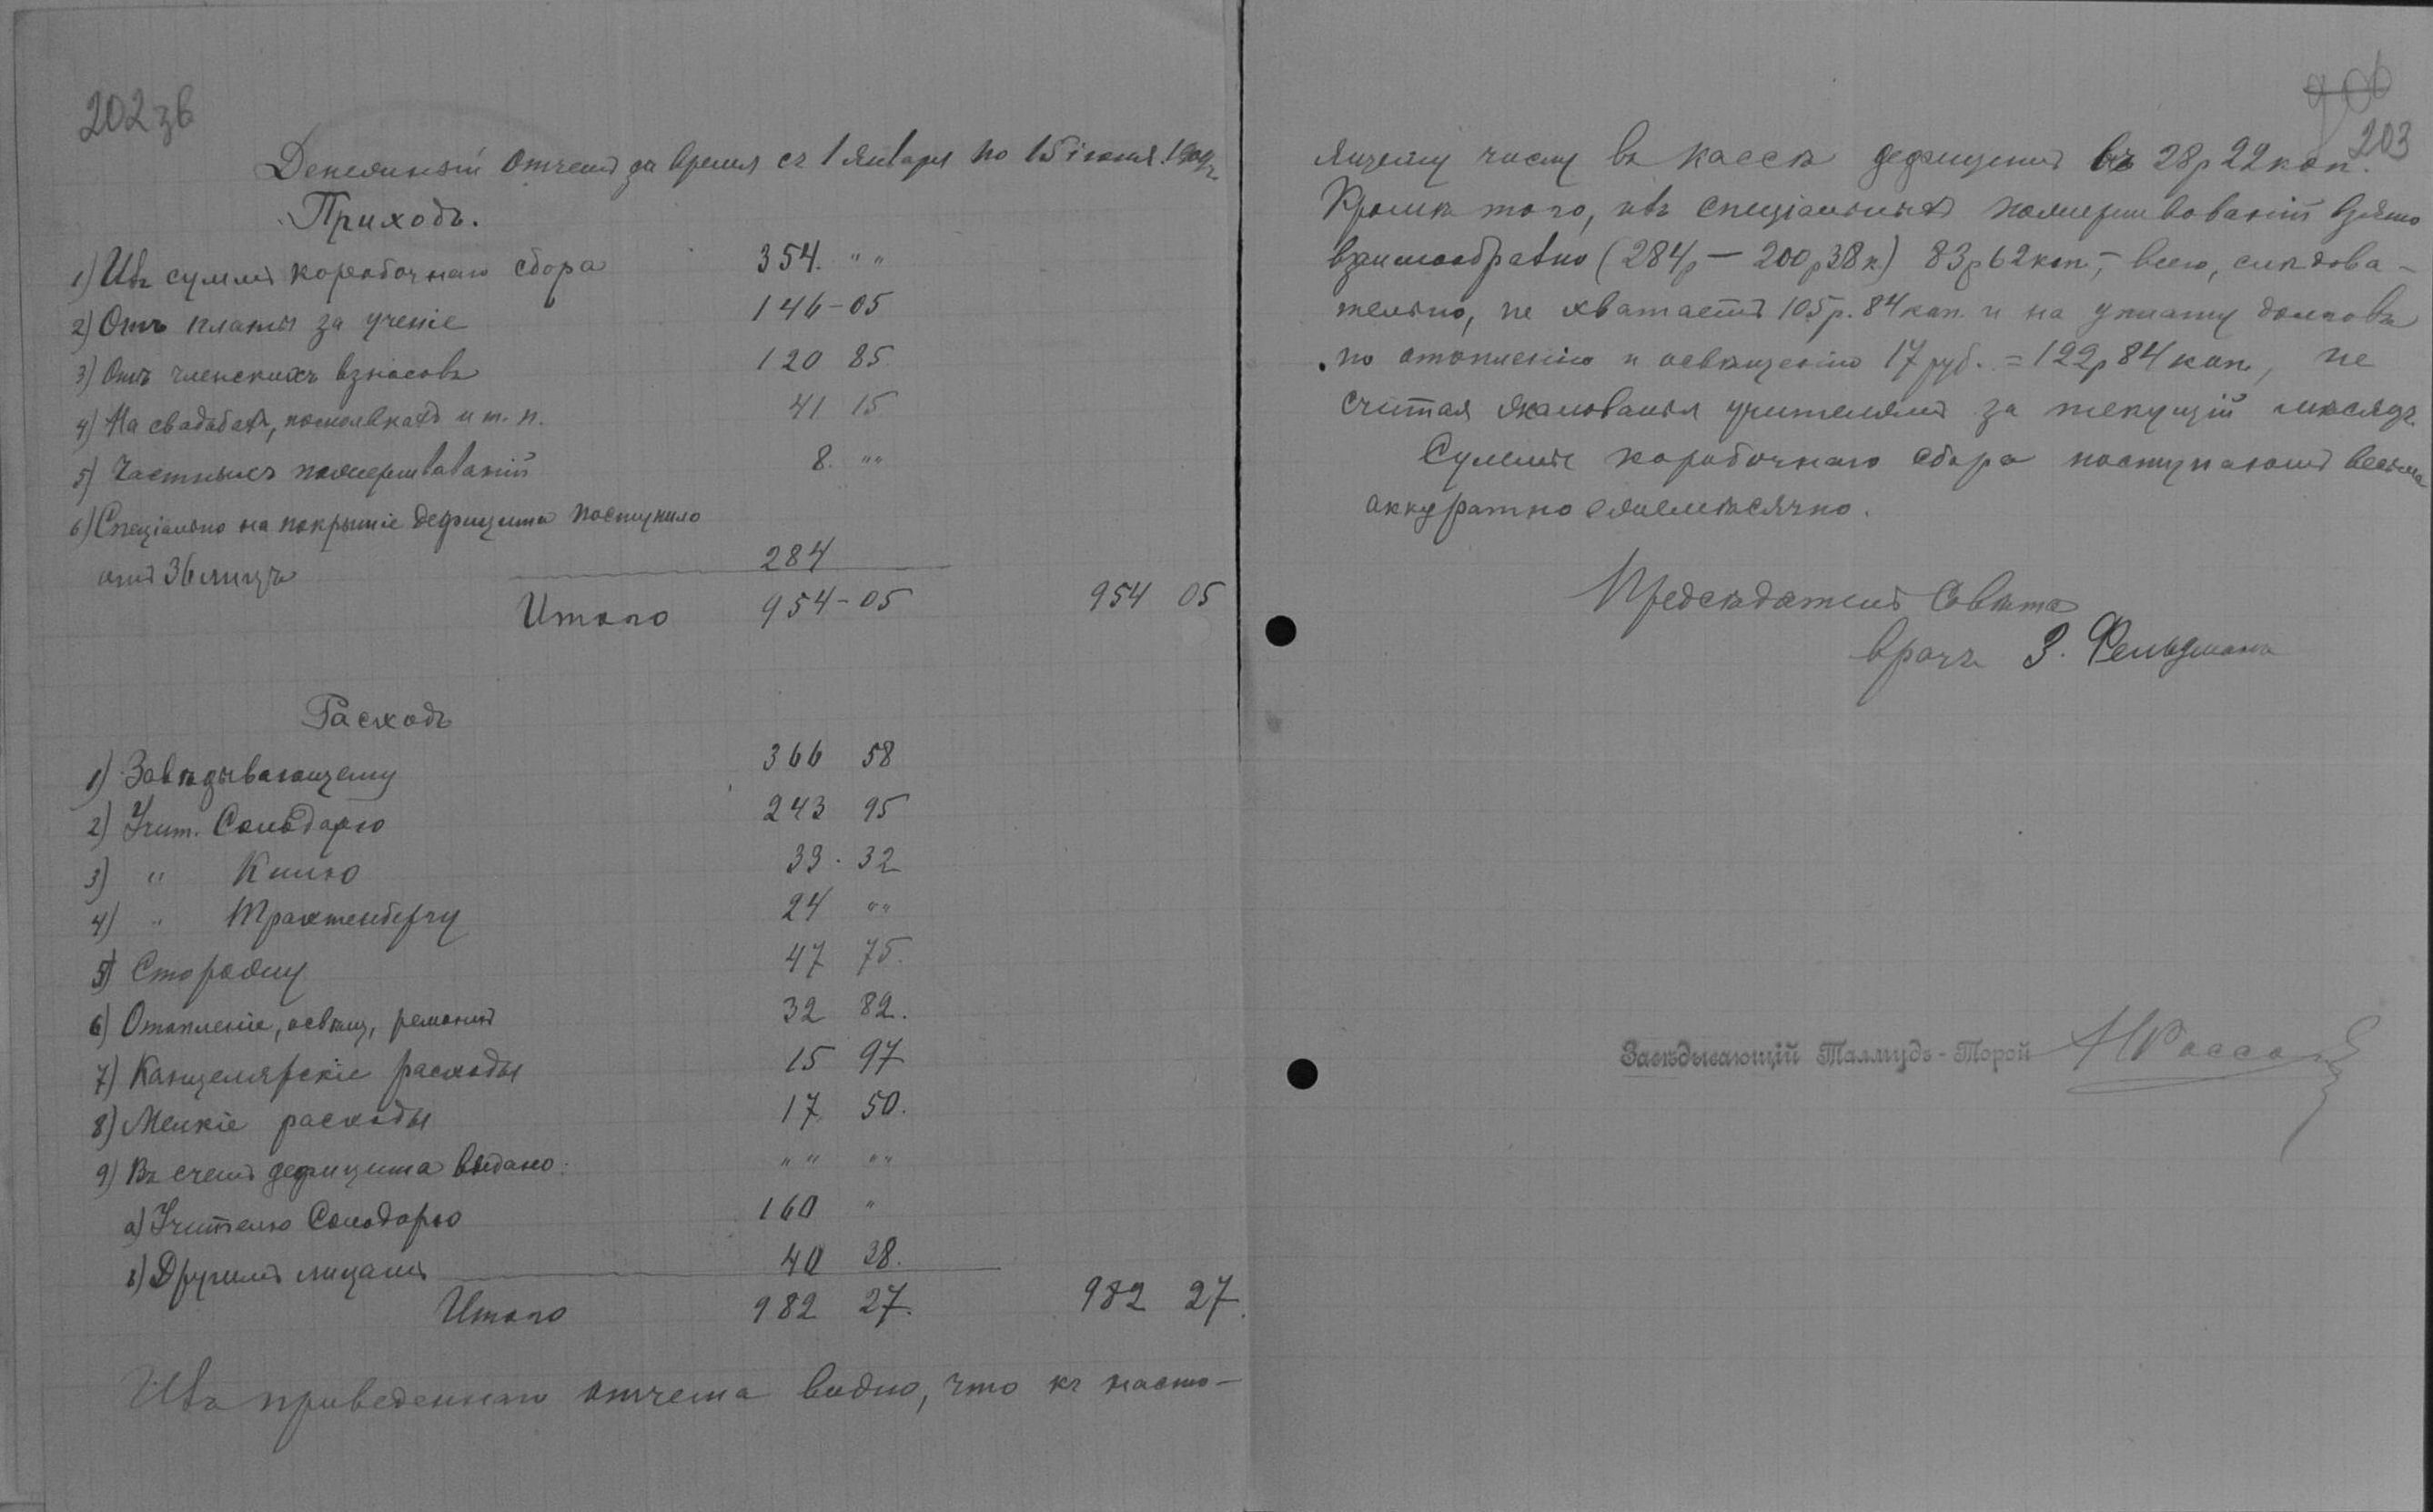 202зв
Денежный отчетъ за время съ 1 января по 15 іюня 190 г.
Приходъ.
1) Изъ суммъ коробочнаго сбора 354. " "
2) Отъ платы за ученіе 146-05
3) Отъ членскихъ взносовъ 120 85.
4) На свадьбахъ, помолвкахъ и т. п. 41 15
5) Частныхъ пожертвованій 8. " "
6) Спеціально на покрытіе дефицита поступило
отъ 36 лицъ 284
Итого 954-05 954 05
Расходъ
1) Завѣдывающему 366 58
2) Учит. Сольдарю 243 95
3) " 33. 32
4) " Трахтенбергу 24 " "
5) Сторожу 47 75.
6) Отопленіе, освѣщ., ремонтъ 32 82.
7) Канцелярскіе расходы 15 97
8) Мелкіе расходы 17. 50.
9) Въ счетъ дефицита выдано: " " " "
а) Учителю Солодарю 160 "
в) Другимъ лицамъ 40 38.
Итого 982 27. 982 27.
Изъ приведеннаго отчета видно, что къ насто-
906
203
ящему числу въ кассѣ дефицитъ въ 28р 22 коп.
Кромѣ того, изъ спеціальныхъ пожертвованій взято
взаимообразно (284р - 200р 38к) 83р 62 коп, - всего, слѣдова-
тельно, не хватаетъ 105р. 84 коп. и на уплату долговъ
по отопленію и освѣщенію 17 руб. = 122р 84 коп., не
считая жалованья учителямъ за текущій мѣсяцъ.
Суммы коробочнаго сбора поступаютъ весьма
аккуратно ежемѣсячно.
Предсѣдатель Совѣта
врачъ З. Фельдманъ
Завѣдывающій Талмудъ-Торой